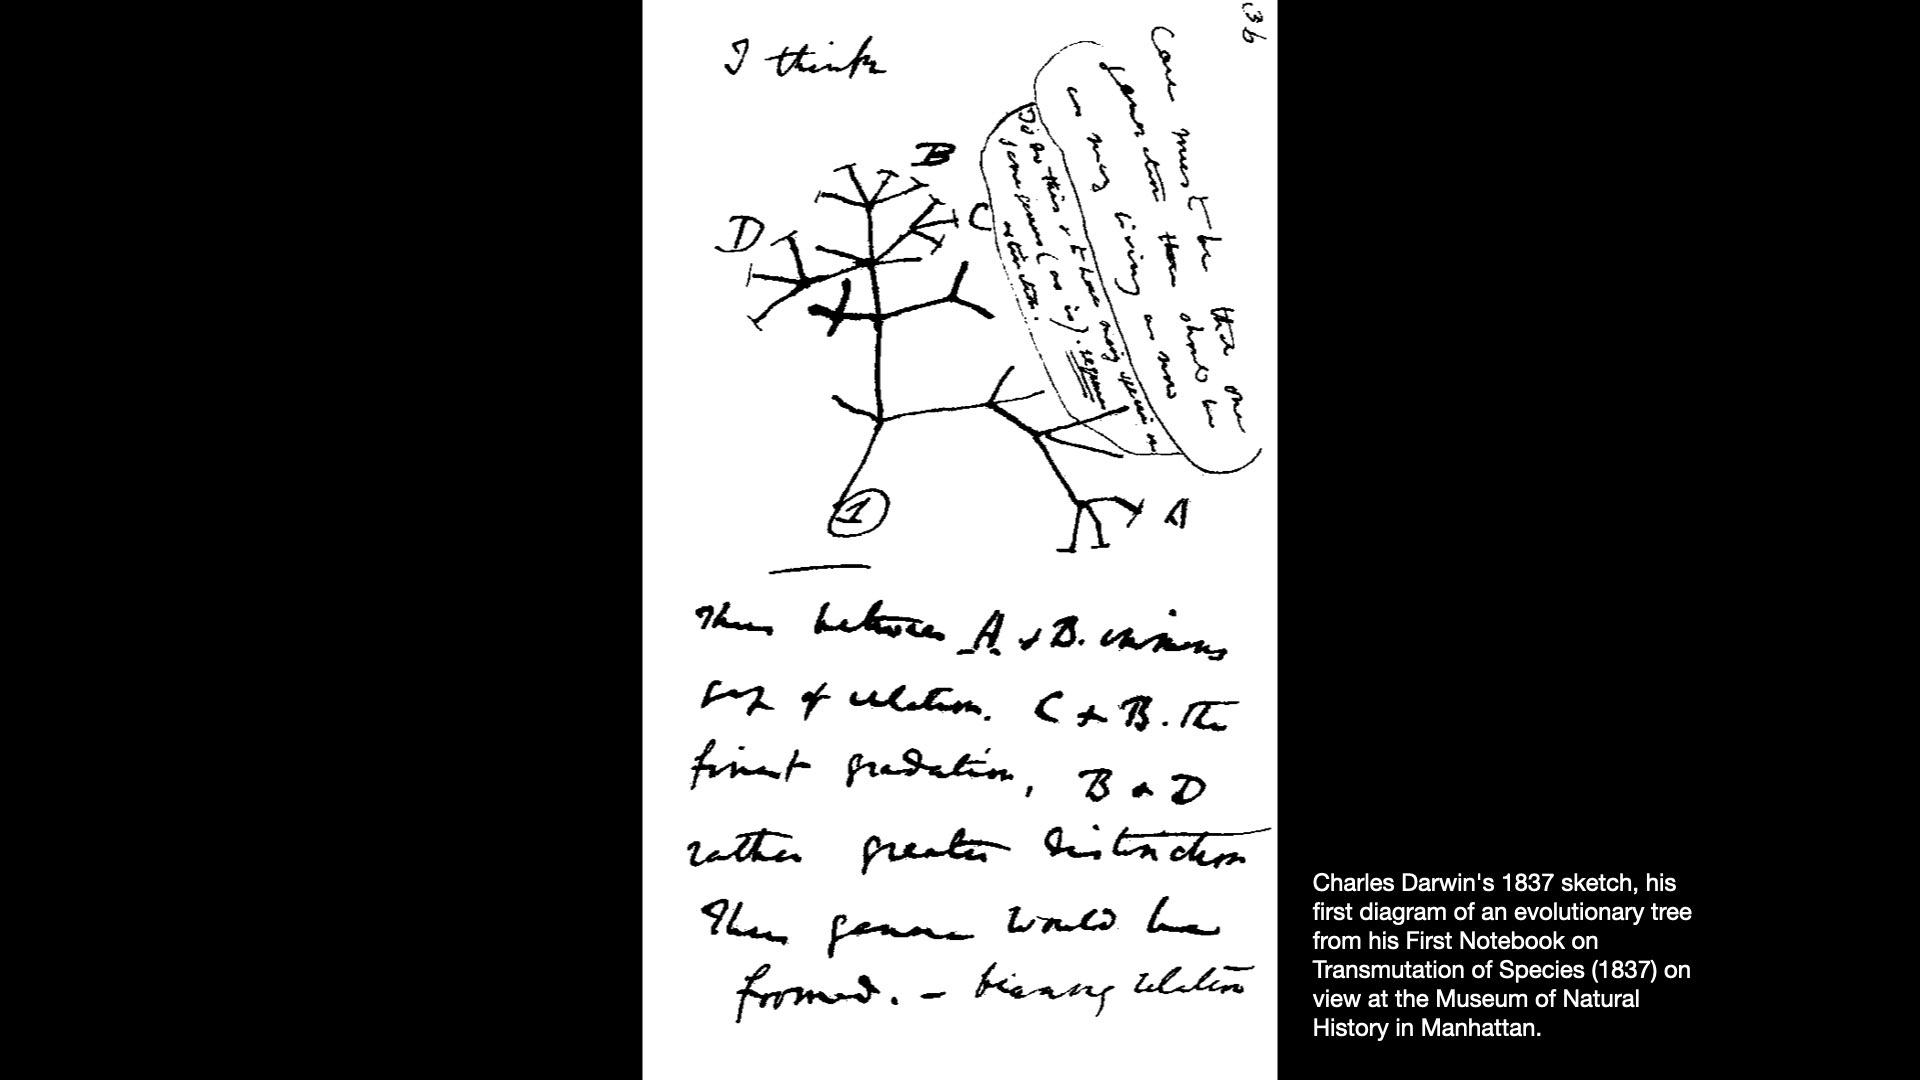 36
I think
Case must be that one
generation then should be
as many living as now
To do this & to have many species in
same genus (as is). requires
extinction.
B
D
C
1
A
Thus between A & B. immens
gap of relation. C & B. the
finest gradation, B & D
rather greater distinction
Thus genera would be
formed. — bearing relation
Charles Darwin's 1837 sketch, his
first diagram of an evolutionary tree
from his First Notebook on
Transmutation of Species (1837) on
view at the Museum of Natural
History in Manhattan.